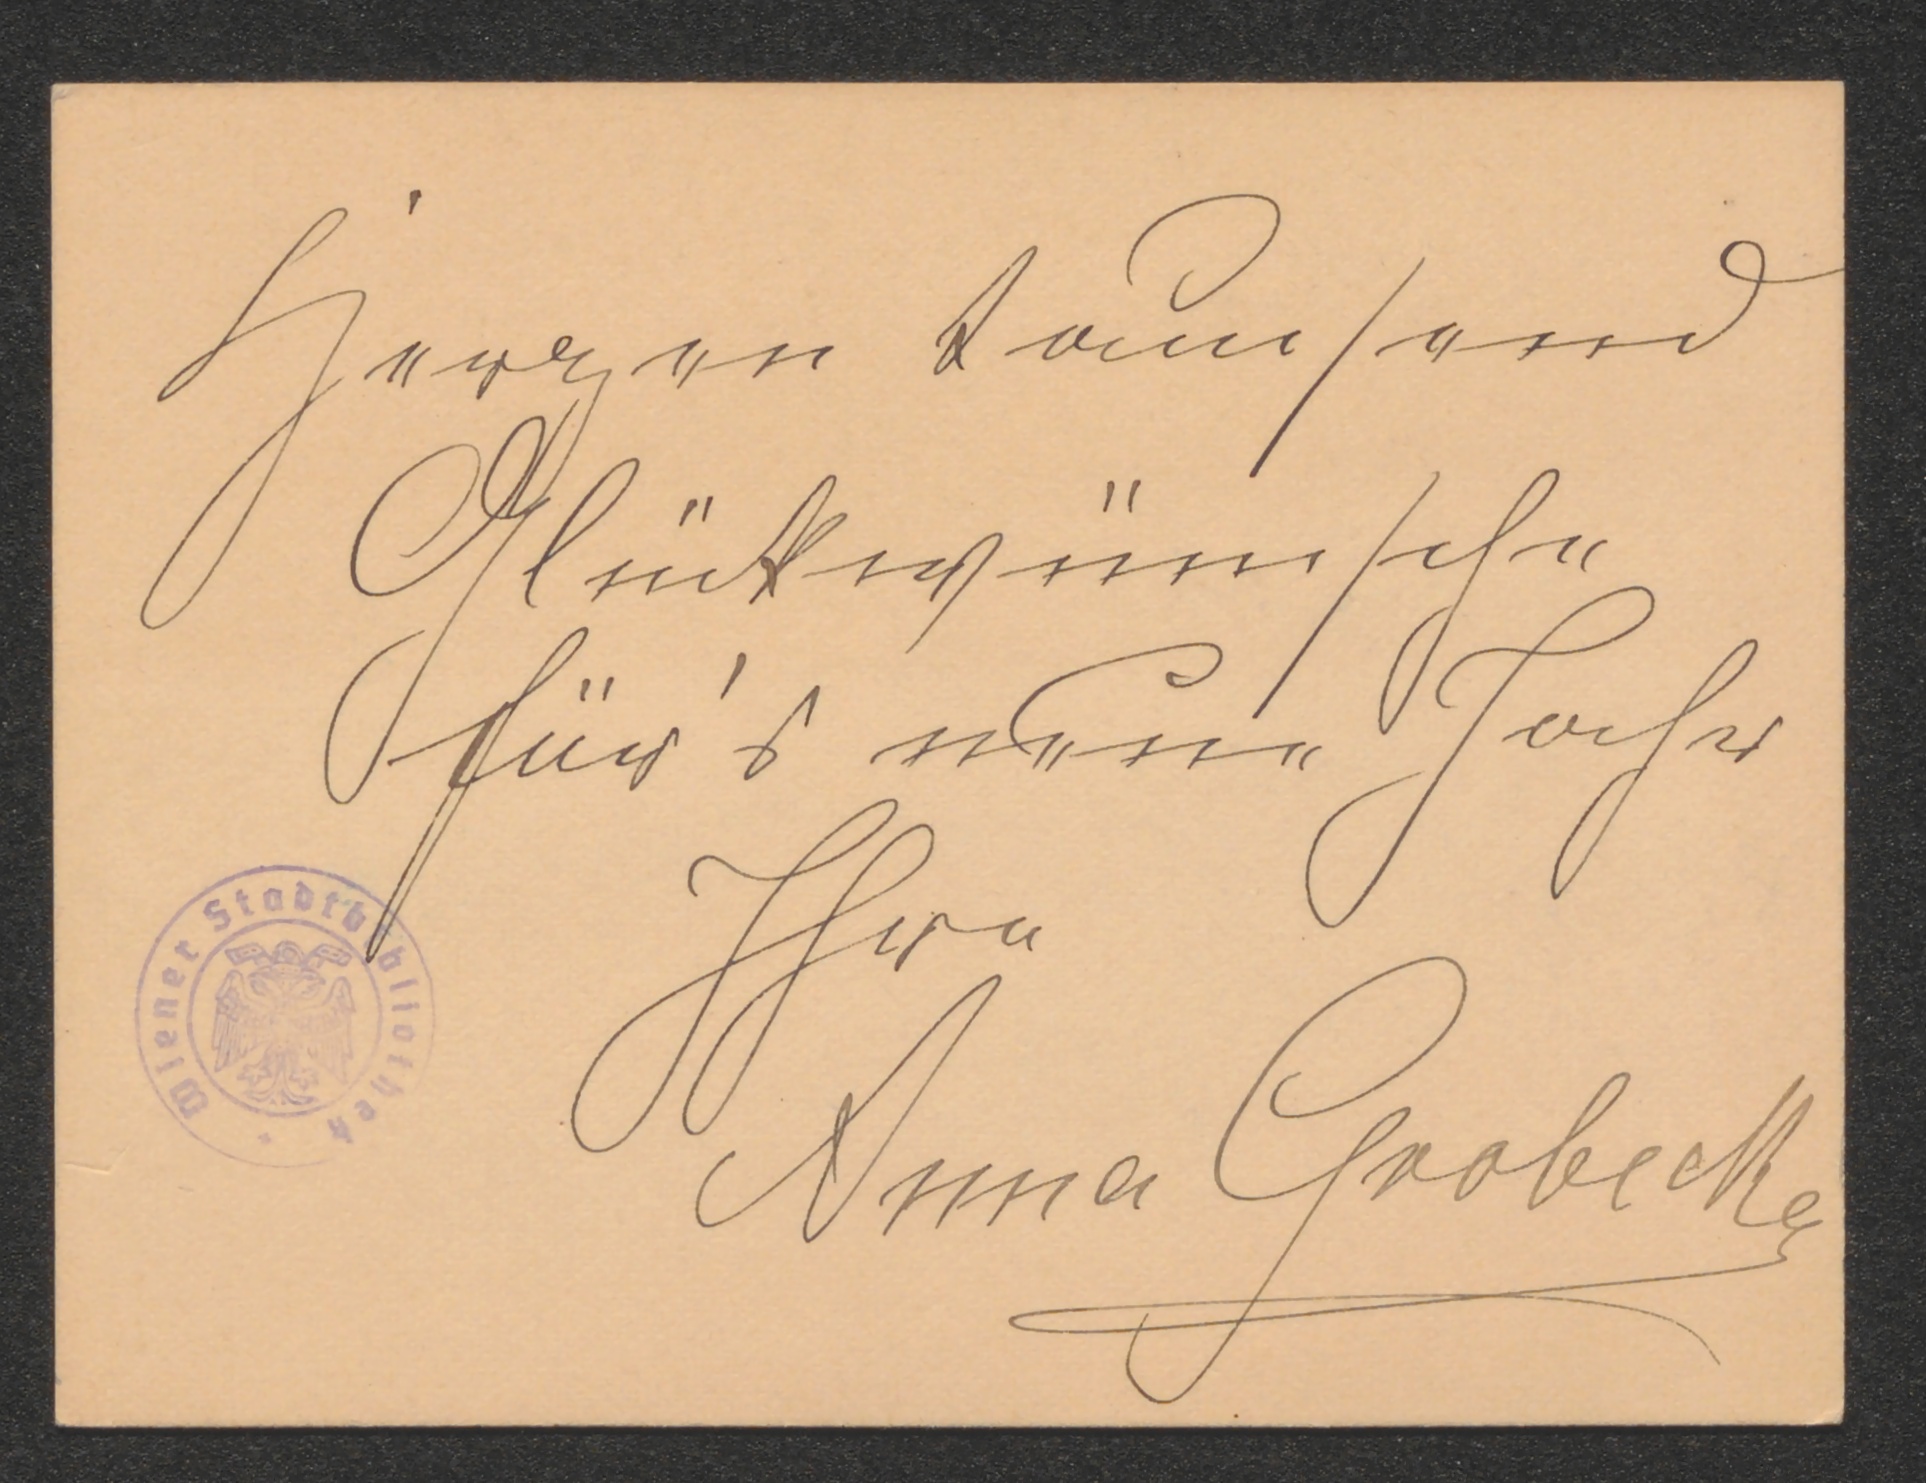 Herzen tausend
Glückwünsche
für's neue Jahr
Ihre
Anna Grobecker
Wiener Stadtbibliothek